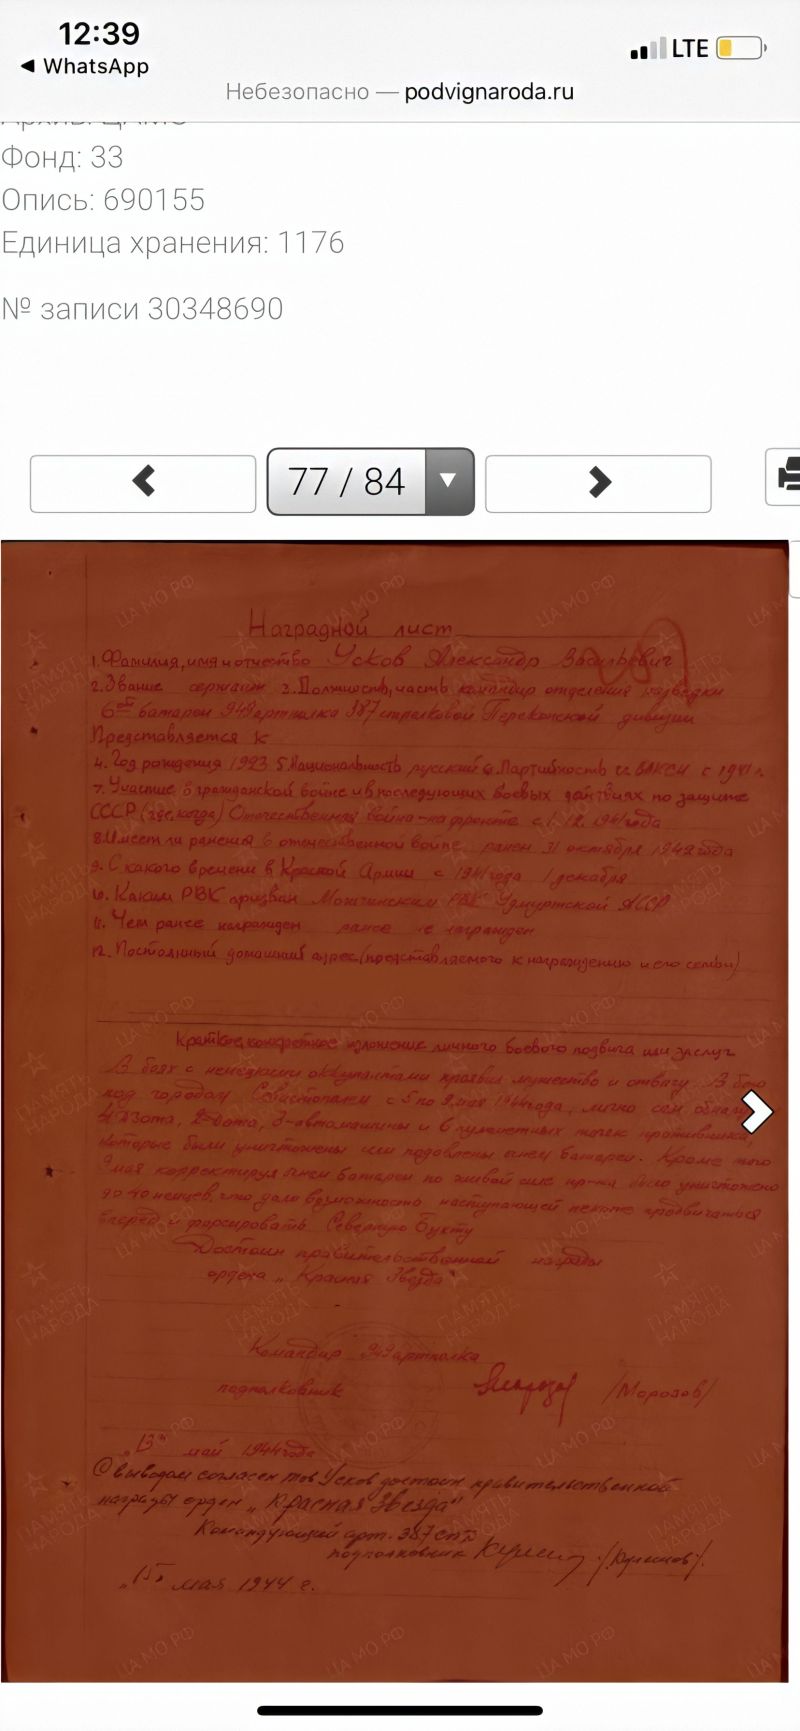 12:39
LTE
◀ WhatsApp
Небезопасно — podvignaroda.ru
Архив: ЦАМО
Фонд: 33
Опись: 690155
Единица хранения: 1176
№ записи 30348690
77 / 84
Наградной лист
1. Фамилия, имя и отчество Усков Александр Васильевич
2. Звание сержант 3. Должность, часть командир отделения разведки
6ой батареи 949 артполка 387 стрелковой Перекопской дивизии
Представляется к
4. Год рождения 1923 5. Национальность русский 6. Партийность чл. ВЛКСМ с 1941 г.
7. Участие в гражданской войне и в последующих боевых действиях по защите
СССР (где, когда) Отечественная война-на фронте с 1.12.1941 года
8. Имеет ли ранения в отечественной войне ранен 31 октября 1942 года
9. С какого времени в Красной Армии с 1941 года 1 декабря
10. Каким РВК призван Можгинским РВК Удмуртской АССР
11. Чем ранее награжден ранее не награжден
12. Постоянный домашний адрес (представляемого к награждению и его семьи)
Краткое, конкретное изложение личного боевого подвига или заслуг
В боях с немецкими оккупантами проявил мужество и отвагу. В бою
под городом Севастополем с 5 по 9 мая 1944 года, лично сам
4 дзота, 2-дота, 3-автомашины и 6 пулеметных точек противника,
которые были уничтожены или подавлены огнем батареи. Кроме того
9 мая корректируя огнем батареи по живой силе пр-ка было уничтожено
до 40 немцев, что дало возможность наступающей пехоте продвигаться
вперед и форсировать Северную Бухту
Достоин правительственной награды
ордена „Красная Звезда"
Командир 949 артполка
подполковник /Морозов/
„13" май 1944 года
С выводом согласен тов Усков достоин правительственной
награды орден „Красная Звезда"
Командующий арт. 387 спд
подполковник
„15" мая 1944 г.
ПАМЯТЬ НАРОДА
ЦАМО РФ